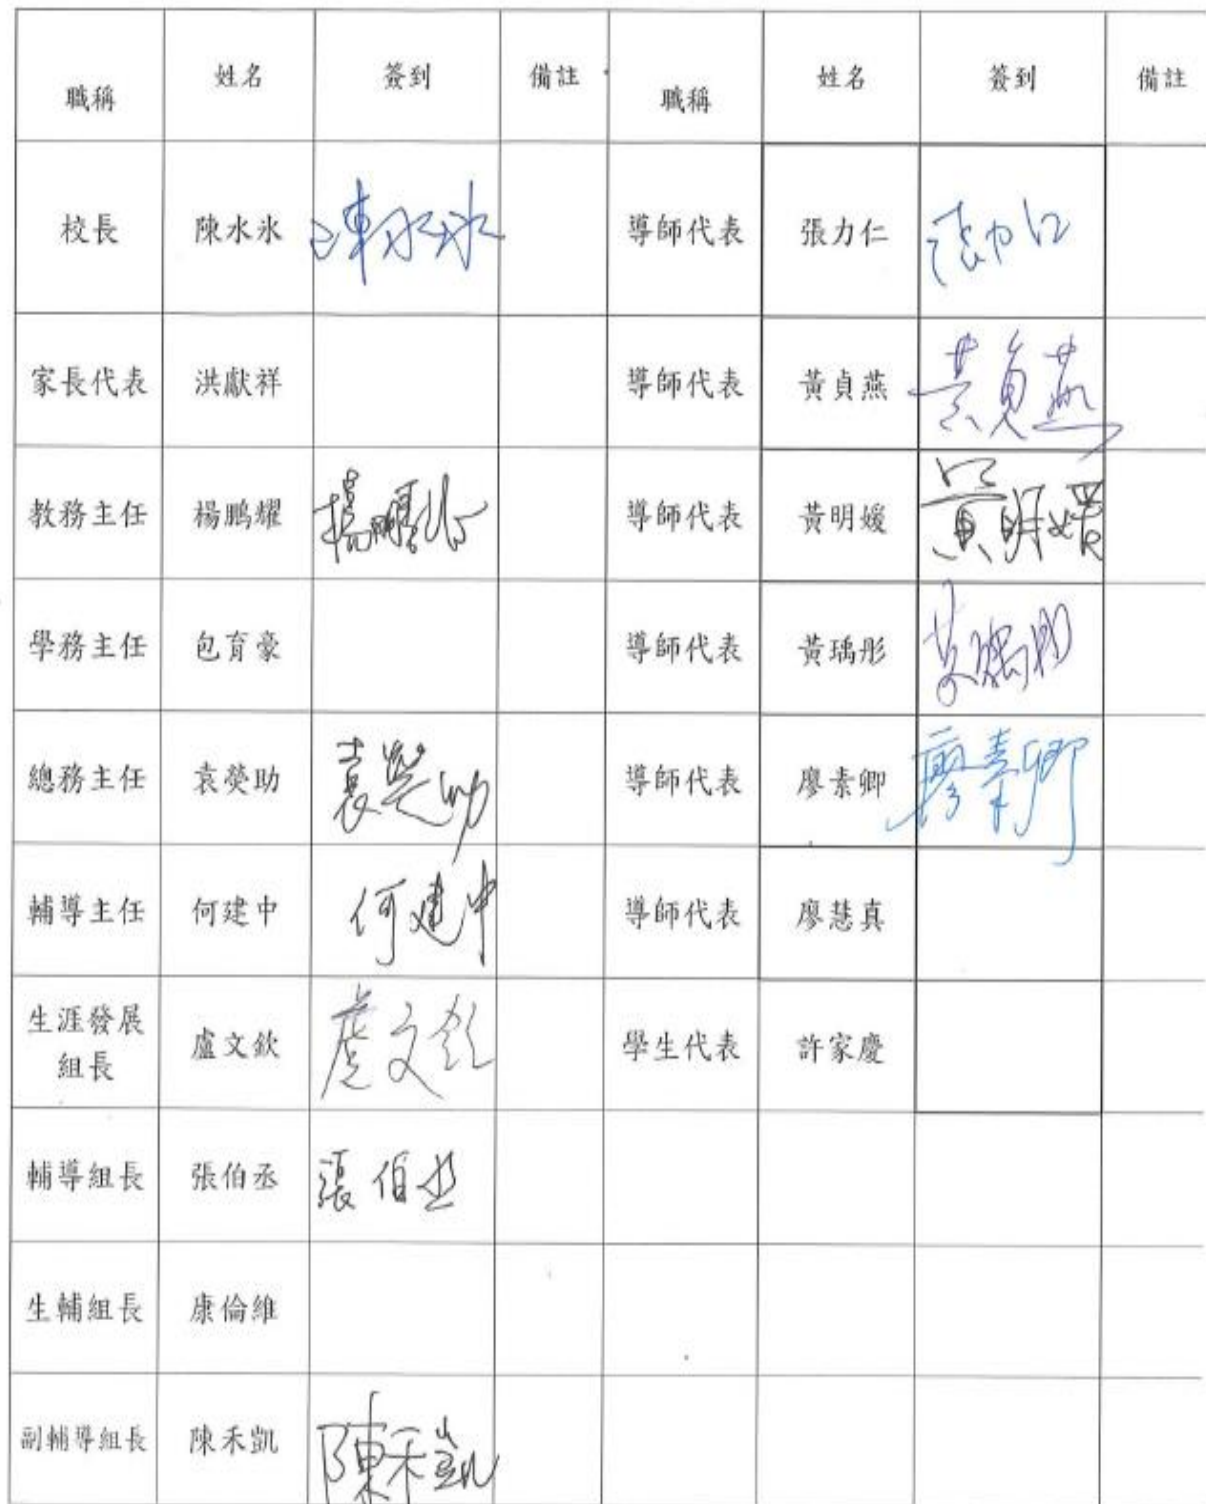 職稱 姓名 簽到 備註 職稱 姓名 簽到 備註
校長 陳水氷 陳水氷 導師代表 張力仁 張力仁
家長代表 洪獻祥 導師代表 黃貞燕 黃貞燕
教務主任 楊鵬耀 楊鵬耀 導師代表 黃明媛 黃明媛
學務主任 包育豪 導師代表 黃瑀彤 黃瑀彤
總務主任 袁焱助 袁焱助 導師代表 廖素卿 廖素卿
輔導主任 何建中 何建中 導師代表 廖慧真
生涯發展
組長 盧文欽 盧文欽 學生代表 許家慶
輔導組長 張伯丞 張伯丞
生輔組長 康倫維
副輔導組長 陳禾凱 陳禾凱